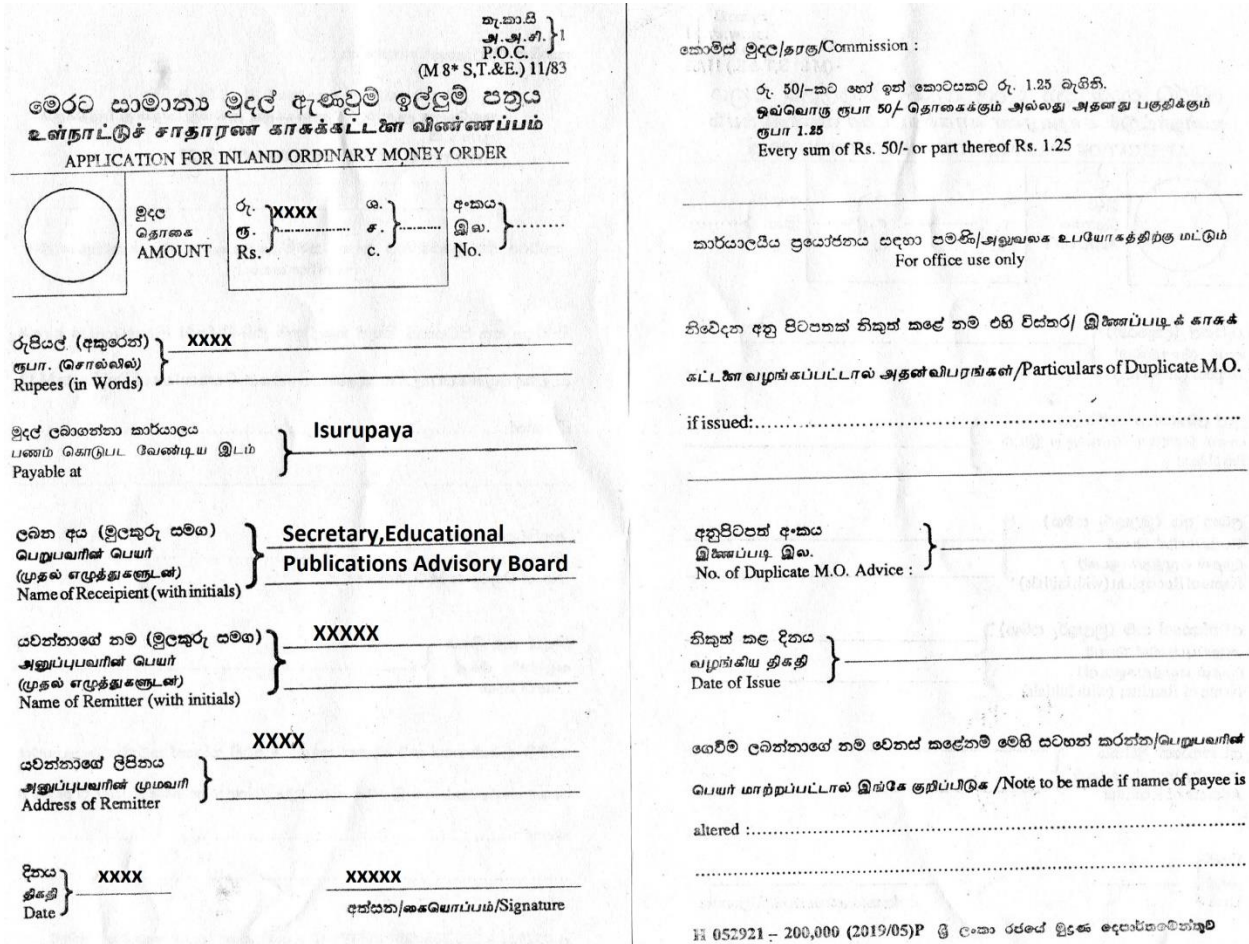 තැ.කා.සි
அ.அ.சி.
P.O.C.
1
(M 8* S,T.&E.) 11/83
මෙරට සාමාන්‍ය මුදල් ඇණවුම් ඉල්ලුම් පත්‍රය
உள்நாட்டுச் சாதாரண காசுக்கட்டளை விண்ணப்பம்
APPLICATION FOR INLAND ORDINARY MONEY ORDER
මුදල
தொகை
AMOUNT
රු.
ரூ.
Rs.
XXXX
ශ.
ச.
c.
අංකය
இல.
No.
රුපියල් (අකුරෙන්)
ரூபா. (சொல்லில்)
Rupees (in Words)
XXXX
මුදල් ලබාගන්නා කාර්යාලය
பணம் கொடுபட வேண்டிய இடம்
Payable at
Isurupaya
ලබන අය (මුලකුරු සමග)
பெறுபவரின் பெயர்
(முதல் எழுத்துகளுடன்)
Name of Receipient (with initials)
Secretary,Educational
Publications Advisory Board
යවන්නාගේ නම (මුලකුරු සමග)
அனுப்புபவரின் பெயர்
(முதல் எழுத்துகளுடன்)
Name of Remitter (with initials)
XXXXX
යවන්නාගේ ලිපිනය
அனுப்புபவரின் முமவரி
Address of Remitter
XXXX
දිනය
திகதி
Date
XXXX
XXXXX
අත්සන/கையொப்பம்/Signature
කොමිස් මුදල/தரகு/Commission :
රු. 50/-කට හෝ ඉන් කොටසකට රු. 1.25 බැගිනි.
ஒவ்வொரு ரூபா 50/- தொகைக்கும் அல்லது அதனது பகுதிக்கும்
ரூபா 1.25
Every sum of Rs. 50/- or part thereof Rs. 1.25
කාර්යාලයීය ප්‍රයෝජනය සඳහා පමණි/அலுவலக உபயோகத்திற்கு மட்டும்
For office use only
නිවේදන අනු පිටපතක් නිකුත් කළේ නම් එහි විස්තර/ இணைப்படிக் காசுக்
கட்டளை வழங்கப்பட்டால் அதன்விபரங்கள்/Particulars of Duplicate M.O.
if issued:
අනුපිටපත් අංකය
இணைப்படி இல.
No. of Duplicate M.O. Advice :
නිකුත් කළ දිනය
வழங்கிய திகதி
Date of Issue
ගෙවීම් ලබන්නාගේ නම වෙනස් කළේනම් මෙහි සටහන් කරන්න/பெறுபவரின்
பெயர் மாற்றப்பட்டால் இங்கே குறிப்பிடுக /Note to be made if name of payee is
altered :
H 052921 – 200,000 (2019/05)P ශ්‍රී ලංකා රජයේ මුද්‍රණ දෙපාර්තමේන්තුව